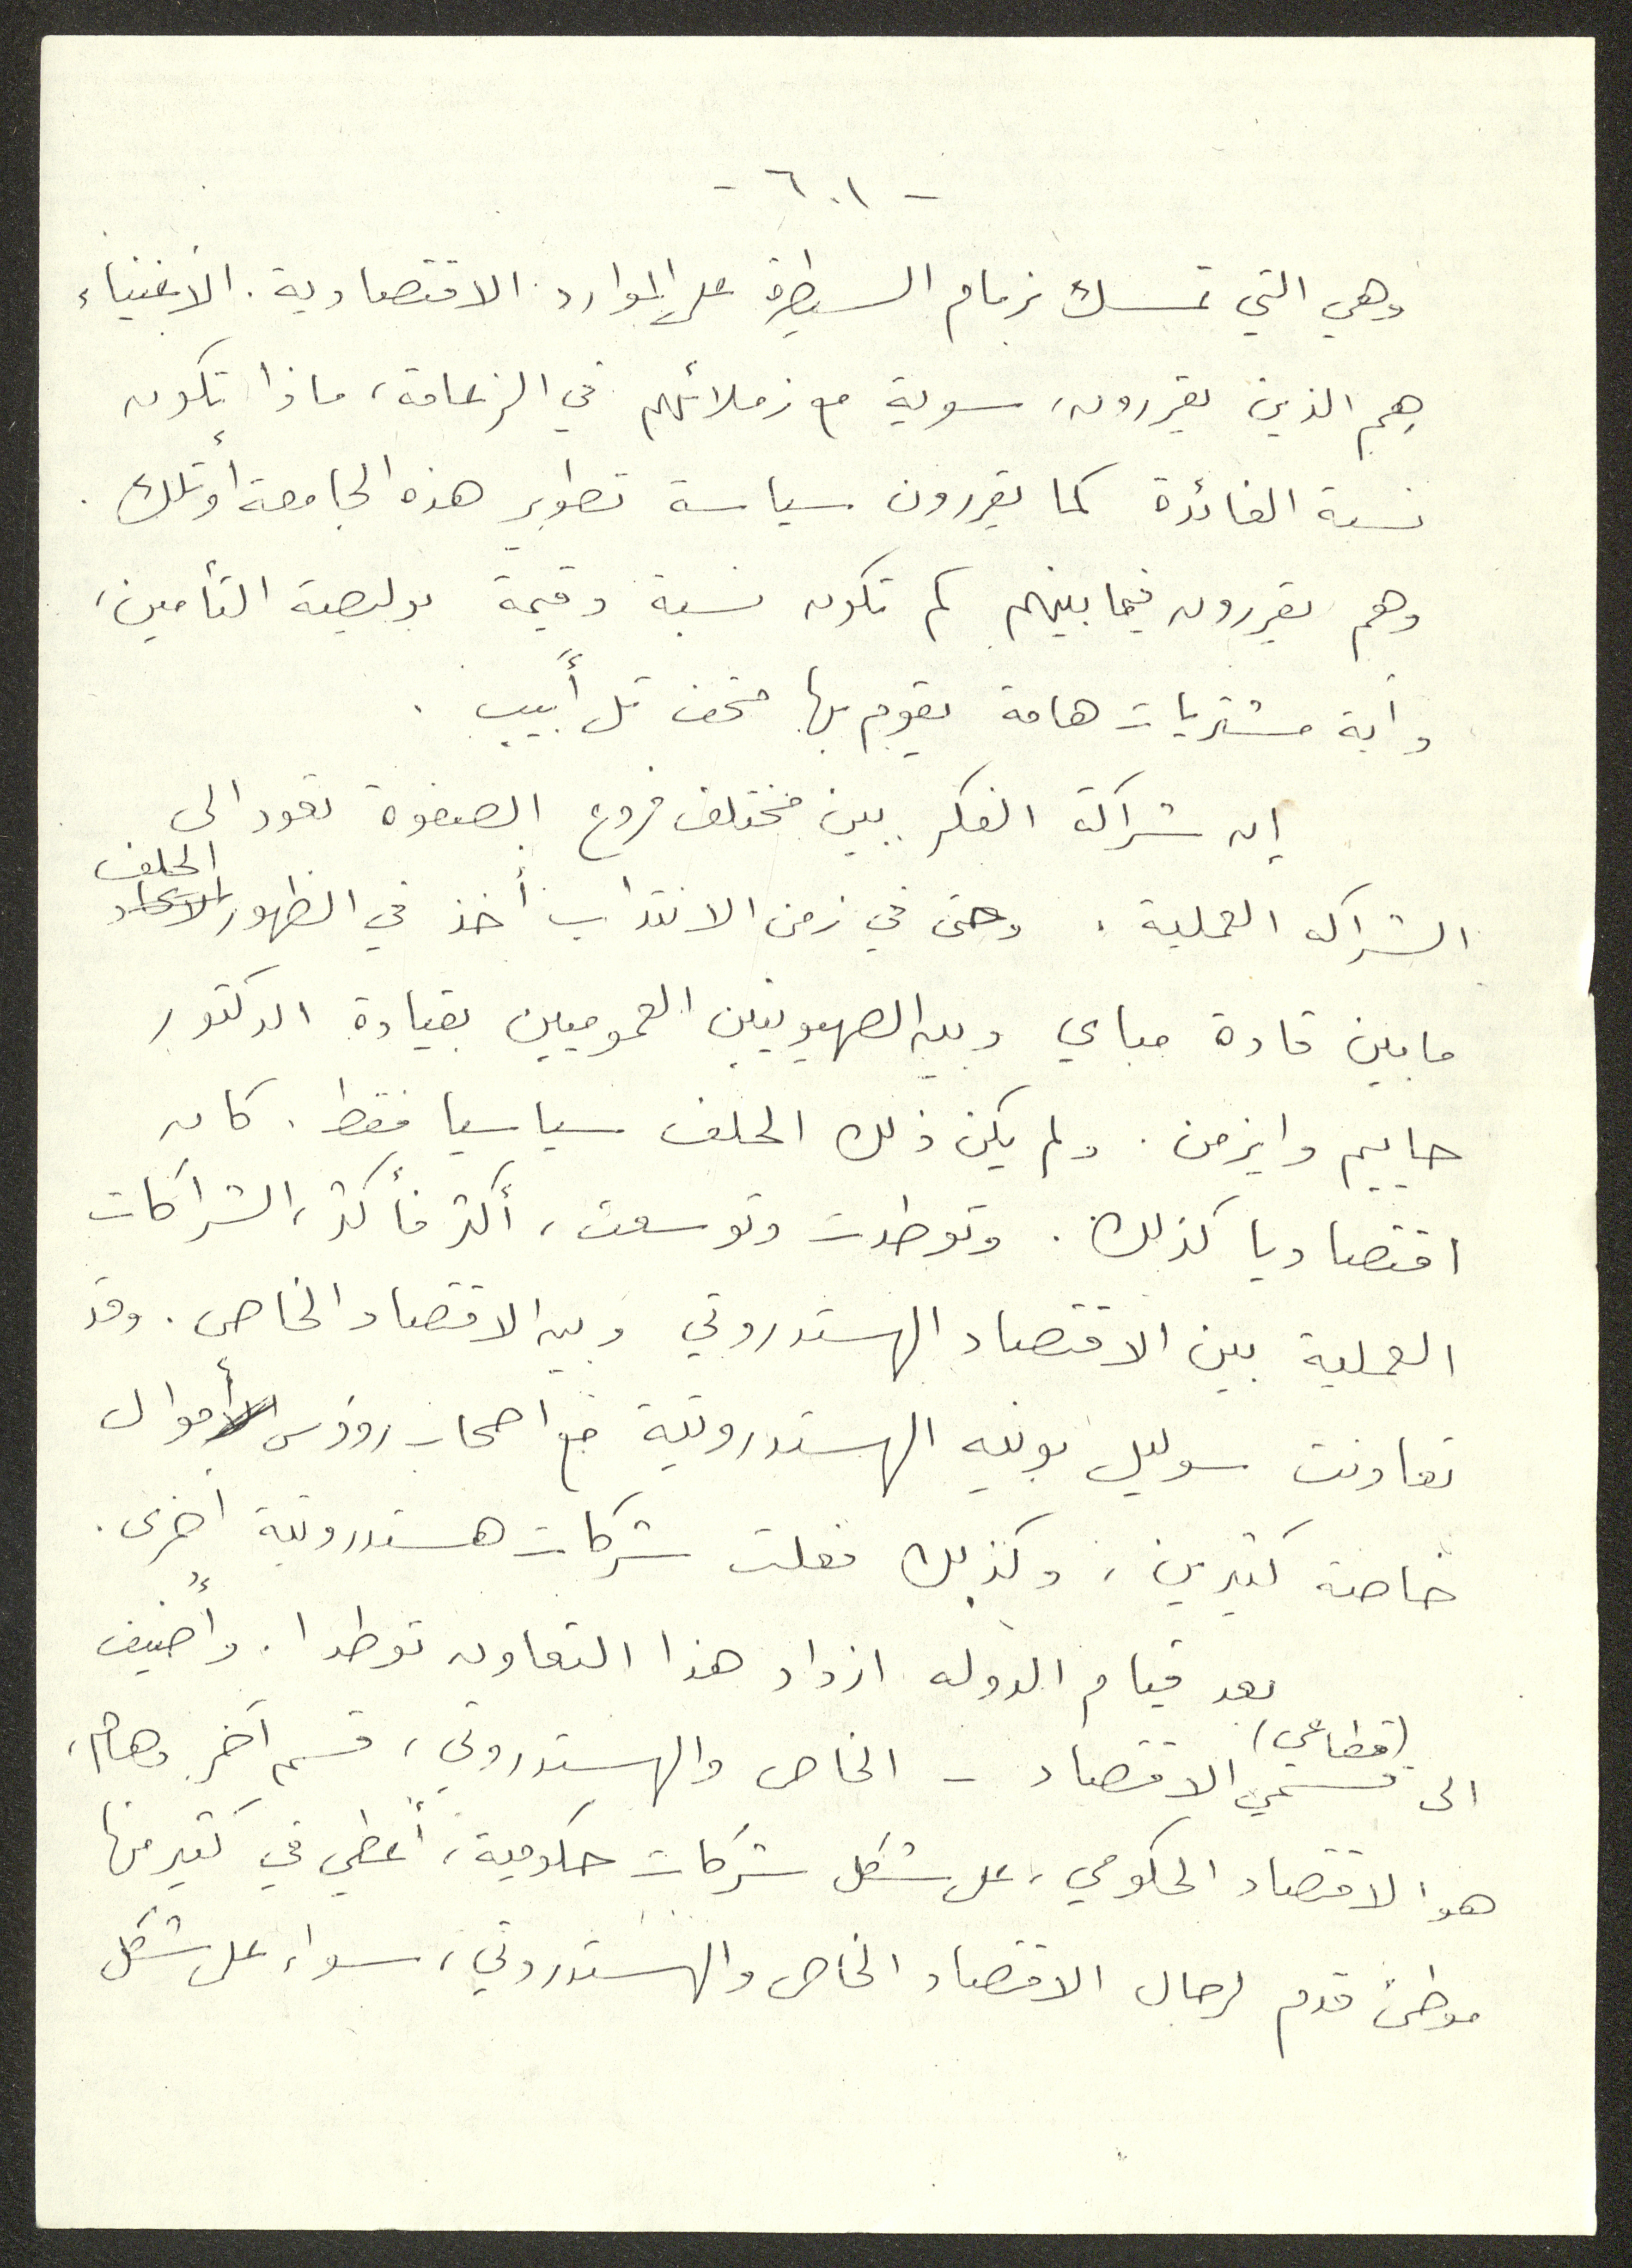 - ٦٠١ -
وهي التي تمسك بزمام السيطرة على الموارد الاقتصادية. الأغنياء
هم الذين يقررون، سوية مع زملائهم في الزعامة، ماذا تكون
نسبة الفائدة كما يقررون سياسة تطوير هذه الجامعة أو تلك.
وهم يقررون فيما بينهم كم تكون نسبة وقيمة بوليصة التأمين،
وأية مشتريات هامة يقوم بها متحف تل أبيب.
إن شراكة الفكر بين مختلف فروع الصفوة تعود الى
الحلف
الشراكه العملية. وحتى في زمن الانتداب أخذ في الظهور الاتحاد
ما بين قادة مباي وبين الصهيونيين العموميين بقيادة الدكتور
حاييم وايزمن. ولم يكن ذلك الحلف سياسيا فقط. كان
اقتصاديا كذلك. وتوطدت وتوسعت، أكثر فأكثر، الشراكات
العملية بين الاقتصاد الهستدروتي وبين الاقتصاد الخاص. وقد
تعاونت سوليل بونيه الهستدروتية مع اصحاب رؤوس أموال
خاصة كثيرين، وكذلك فعلت شركات هستدروتية أخرى.
بعد قيام الدوله ازداد هذا التعاون توطدا. وأُضيف
(قطاعي)
الى قسمي الاقتصاد - الخاص والهستدروتي، قسم آخر وهام،
هو الاقتصاد الحكومي، على شكل شركات حكومية، أعطي في كثير منها
موطئ قدم لرجال الاقتصاد الخاص والهستدروتي، سواء على شكل